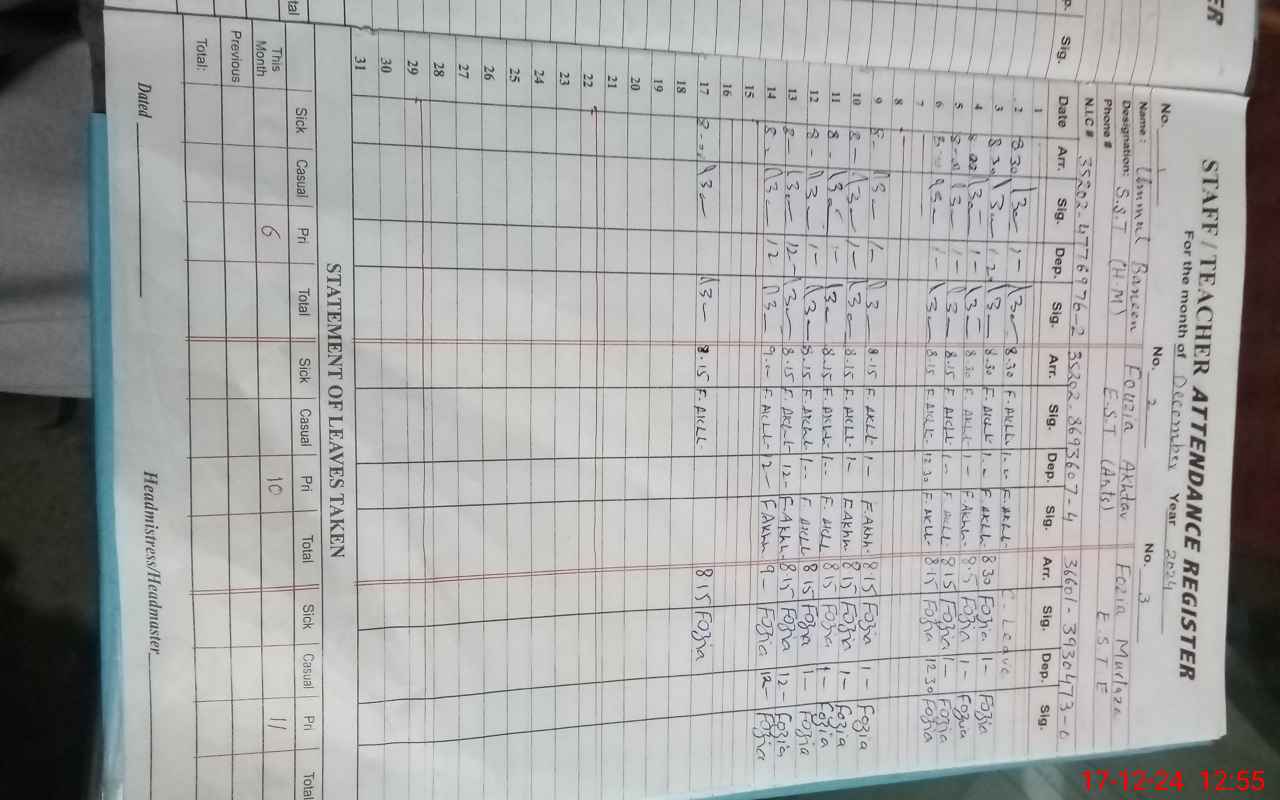 STAFF / TEACHER ATTENDANCE REGISTER
For the month of December Year 2024
No. 1 No. 2 No. 3
Name: Ummul Baneen Fouzia Akhtar Fozia Murtaza
Designation: S.S.T (H.M) E.S.T (Arts) E.S.T E
Phone #
N.I.C # 35202-4776976-2 35202.8693607-4 36601-3930473-6
Date Arr. Sig. Dep. Sig. Arr. Sig. Dep. Sig. Arr. Sig. Dep. Sig.
1
2 8 30 1- 8.30 F.Akht. F.Akht. C-Leave
3 8 30 8.30 F.Akht. F.Akht. 8 30 Fozia 1- Fozia
4 1- 8.30 F.Akht. 1- F.Akht. Fozia 1- Fozia
5 1- 8.15 F.Akht. 1- F.Akht. 8 15 Fozia 1- Fozia
6 1- 8.15 F.Akht. 12 30 F.Akht. 8.15 Fozia 12 30 Fozia
7
8
9 8- 1- 8.15 F.Akht. 1- F.Akht. 8 15 Fozia 1- Fozia
10 8- 1- 8.15 F.Akht. 1- F.Akht. 8 15 Fozia 1- Fozia
11 8- 1- 8.15 F.Akht. 1- F.Akht 8 15 Fozia 1- Fozia
12 8- 1- 8.15 F.Akht. 1- F.Akht. 8 15 Fozia 1- Fozia
13 8- 12- 8.15 F.Akht. 12- F.Akht. 8 15 Fozia 12- Fozia
14 8- 12 F.Akht. 12- F.Akht. 9- Fozia 12- Fozia
15
16
17 8.15 F.Akht. 8 15 Fozia
18
19
20
21
22
23
24
25
26
27
28
29
30
31
STATEMENT OF LEAVES TAKEN
Sick Casual Pri Total Sick Casual Pri Total Sick Casual Pri Total
This Month 6 10 11
Previous
Total:
Dated Headmistress/Headmaster
ER
p. Sig.
tal
17-12-24 12:55